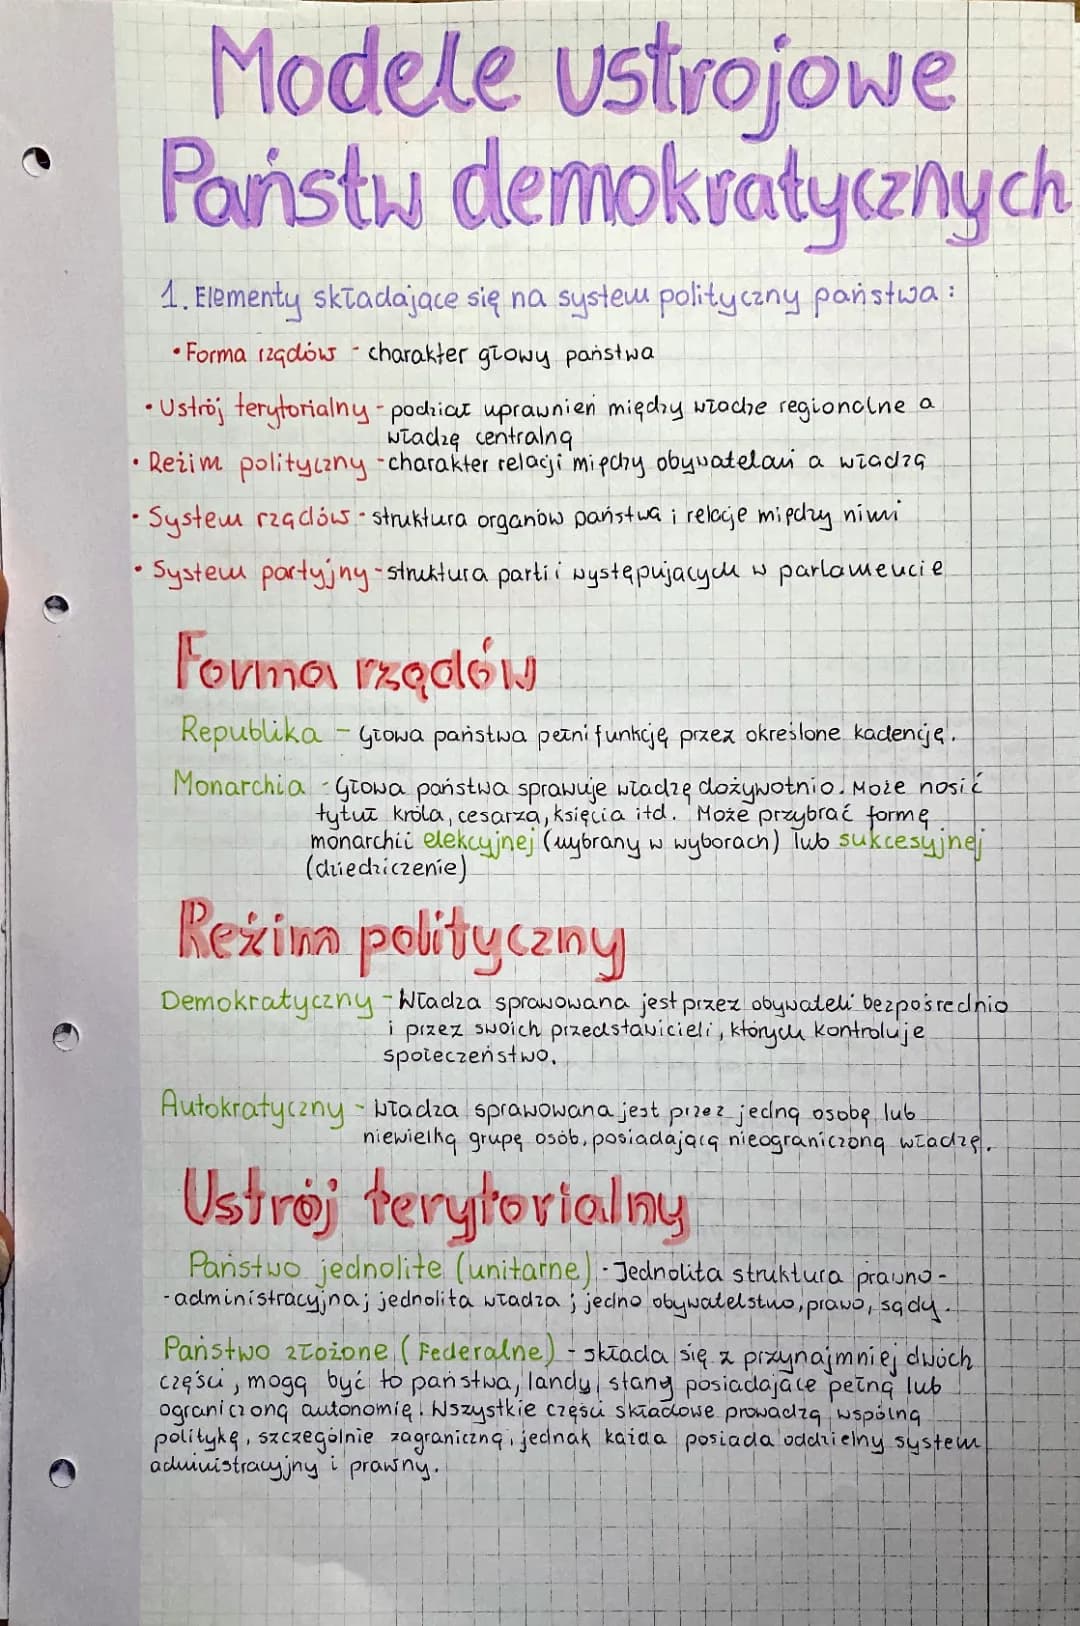 Modele ustrojowe
Państw demokratycznych
1. Elementy składające się na system polityczny państwa:
• Forma rządów - charakter głowy państwa
• Ustrój terytorialny - podział uprawnień między władze regionalne a
władzę centralną
• Reżim polityczny - charakter relacji między obywatelami a władzą
• System rządów - struktura organów państwa i relacje między nimi
• System partyjny - struktura partii występujących w parlamencie
Forma rządów
Republika - Głowa państwa pełni funkcję przez określone kadencję.
Monarchia - Głowa państwa sprawuje władzę dożywotnio. Może nosić
tytuł króla, cesarza, księcia itd. Może przybrać formę
monarchii elekcyjnej (wybrany w wyborach) lub sukcesyjnej
(dziedziczenie)
Reżim polityczny
Demokratyczny - Władza sprawowana jest przez obywateli bezpośrednio
i przez swoich przedstawicieli, których kontroluje
społeczeństwo.
Autokratyczny - władza sprawowana jest przez jedną osobę lub
niewielką grupę osób, posiadającą nieograniczoną władzę.
Ustrój terytorialny
Państwo jednolite (unitarne) - Jednolita struktura prawno-
-administracyjna; jednolita władza; jedno obywatelstwo, prawo, sądy.
Państwo złożone (Federalne) - składa się z przynajmniej dwóch
części, mogą być to państwa, landy, stany posiadające pełną lub
ograniczoną autonomię. Wszystkie części składowe prowadzą wspólną
politykę, szczególnie zagraniczną, jednak każda posiada oddzielny system
administracyjny i prawny.